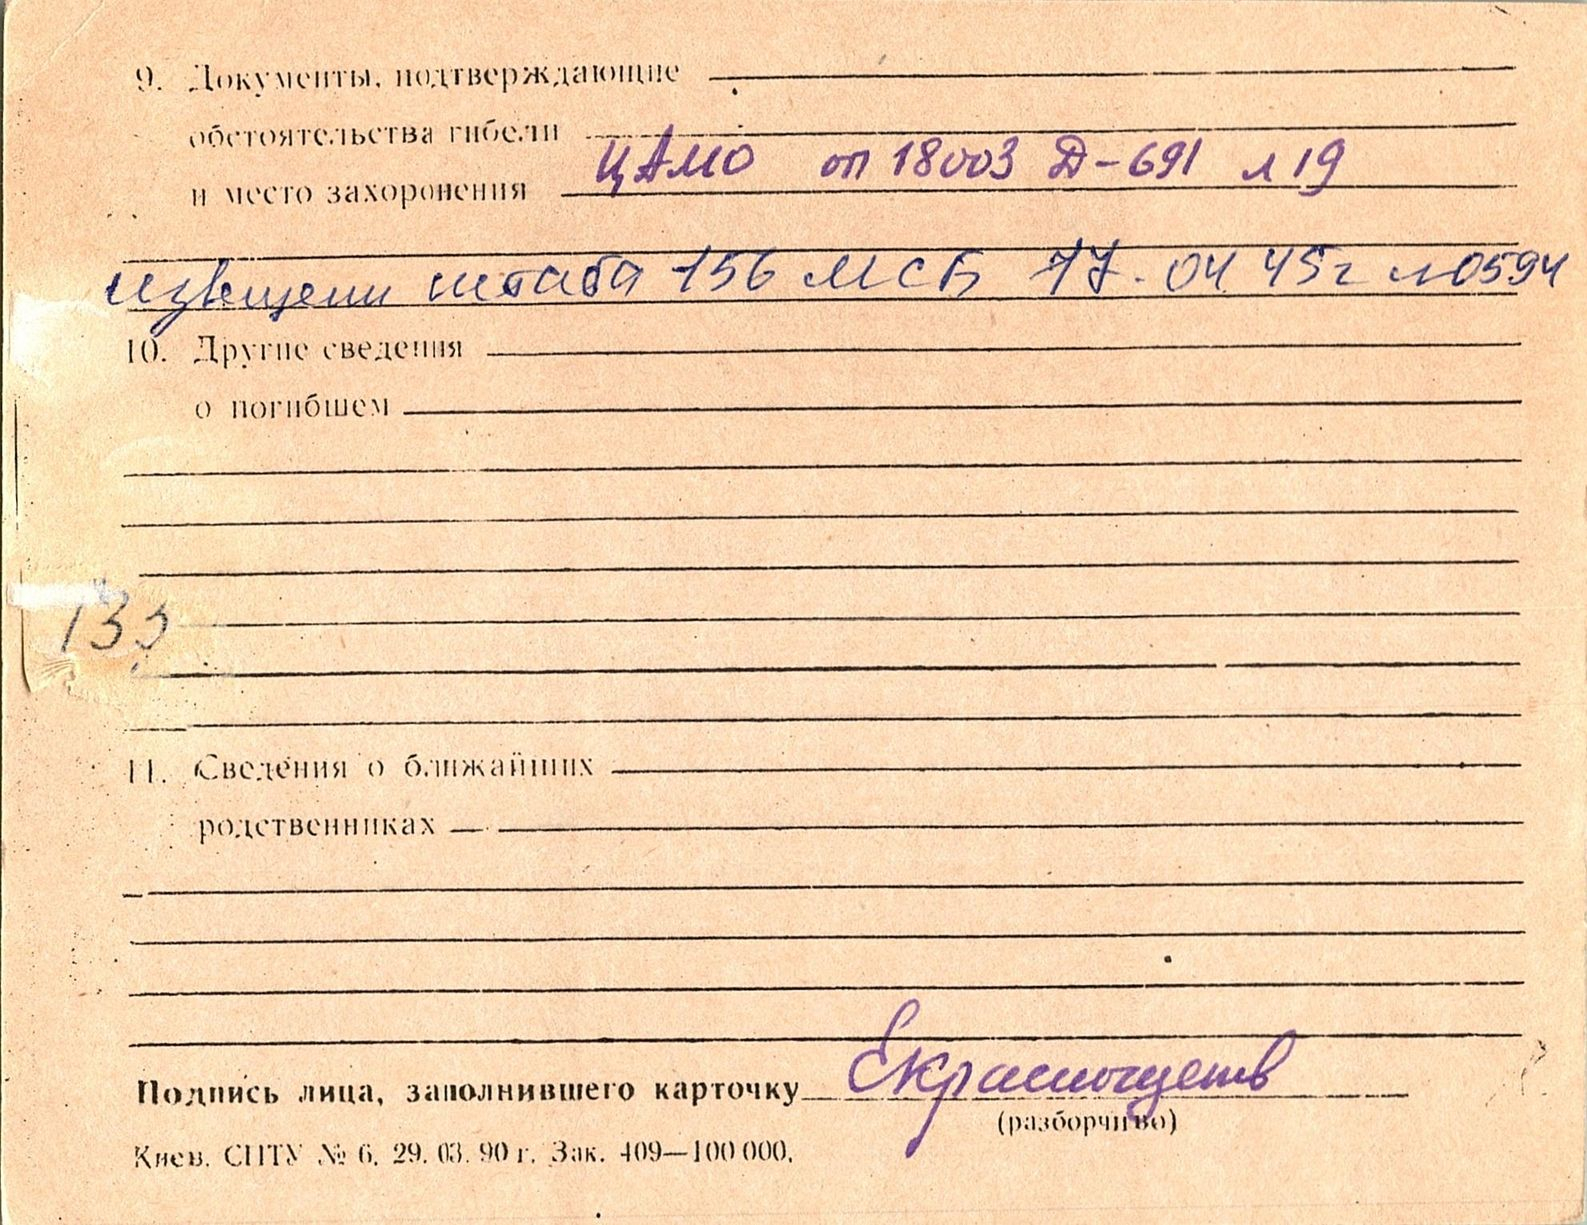 9. Документы, подтверждающие
обстоятельства гибели
и место захоронения ЦАМО оп 18003 Д-691 л 19
извещени штаба 156 МСБ 17.04 45г 0594
10. Другие сведения
о погибшем
133
11. Сведения о ближайших
родственниках
Подпись лица, заполнившего карточку
(разборчиво)
Киев. СПТУ № 6. 29. 03. 90 г. Зак. 409—100 000.